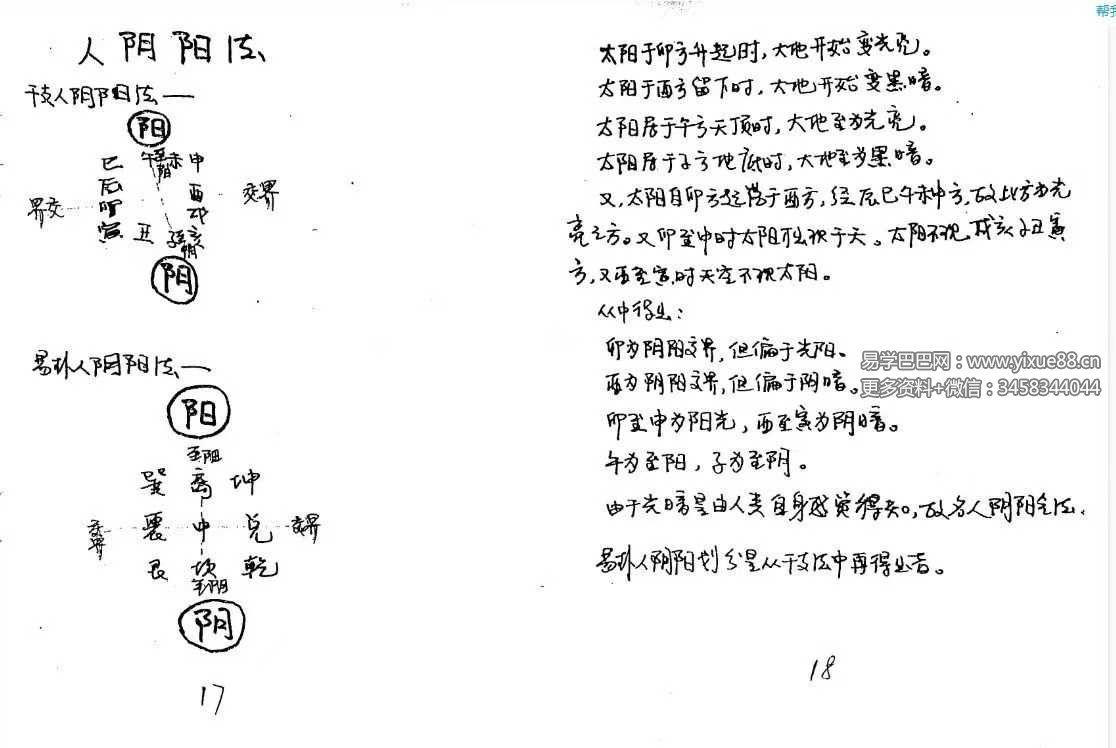 人阴阳法
干支人阴阳法——
阳
巳 午 至阳 未 申
辰 酉
界交 交界
卯 戌
寅 丑 子 至阴 亥
阴
易卦人阴阳法——
阳
至阳
巽 离 坤
交界 震 中 兑 交界
艮 坎 乾
至阴
阴
17
太阳于卯方升起时,大地开始变光亮。
太阳于酉方留下时,大地开始变黑暗。
太阳居于午方天顶时,大地至为光亮。
太阳居于子方地底时,大地至为黑暗。
又,太阳自卯方起落于酉方,经辰巳午未申方,故此方为光
亮之方。又卯至申时太阳于天。太阳不现戌亥子丑寅
方,又酉至寅时天空不现太阳。
从中得出:
卯为阴阳交界,但偏于光阳。
酉为阴阳交界,但偏于阴暗。
卯至申为阳光,酉至寅为阴暗。
午为至阳,子为至阴。
由于光暗是由人类自身感觉得知,故名人阴阳法。
易卦人阴阳划分是从干支法中再得出者。
18
易学巴巴网:www.yixue88.cn
更多资料+微信:3458344044
帮